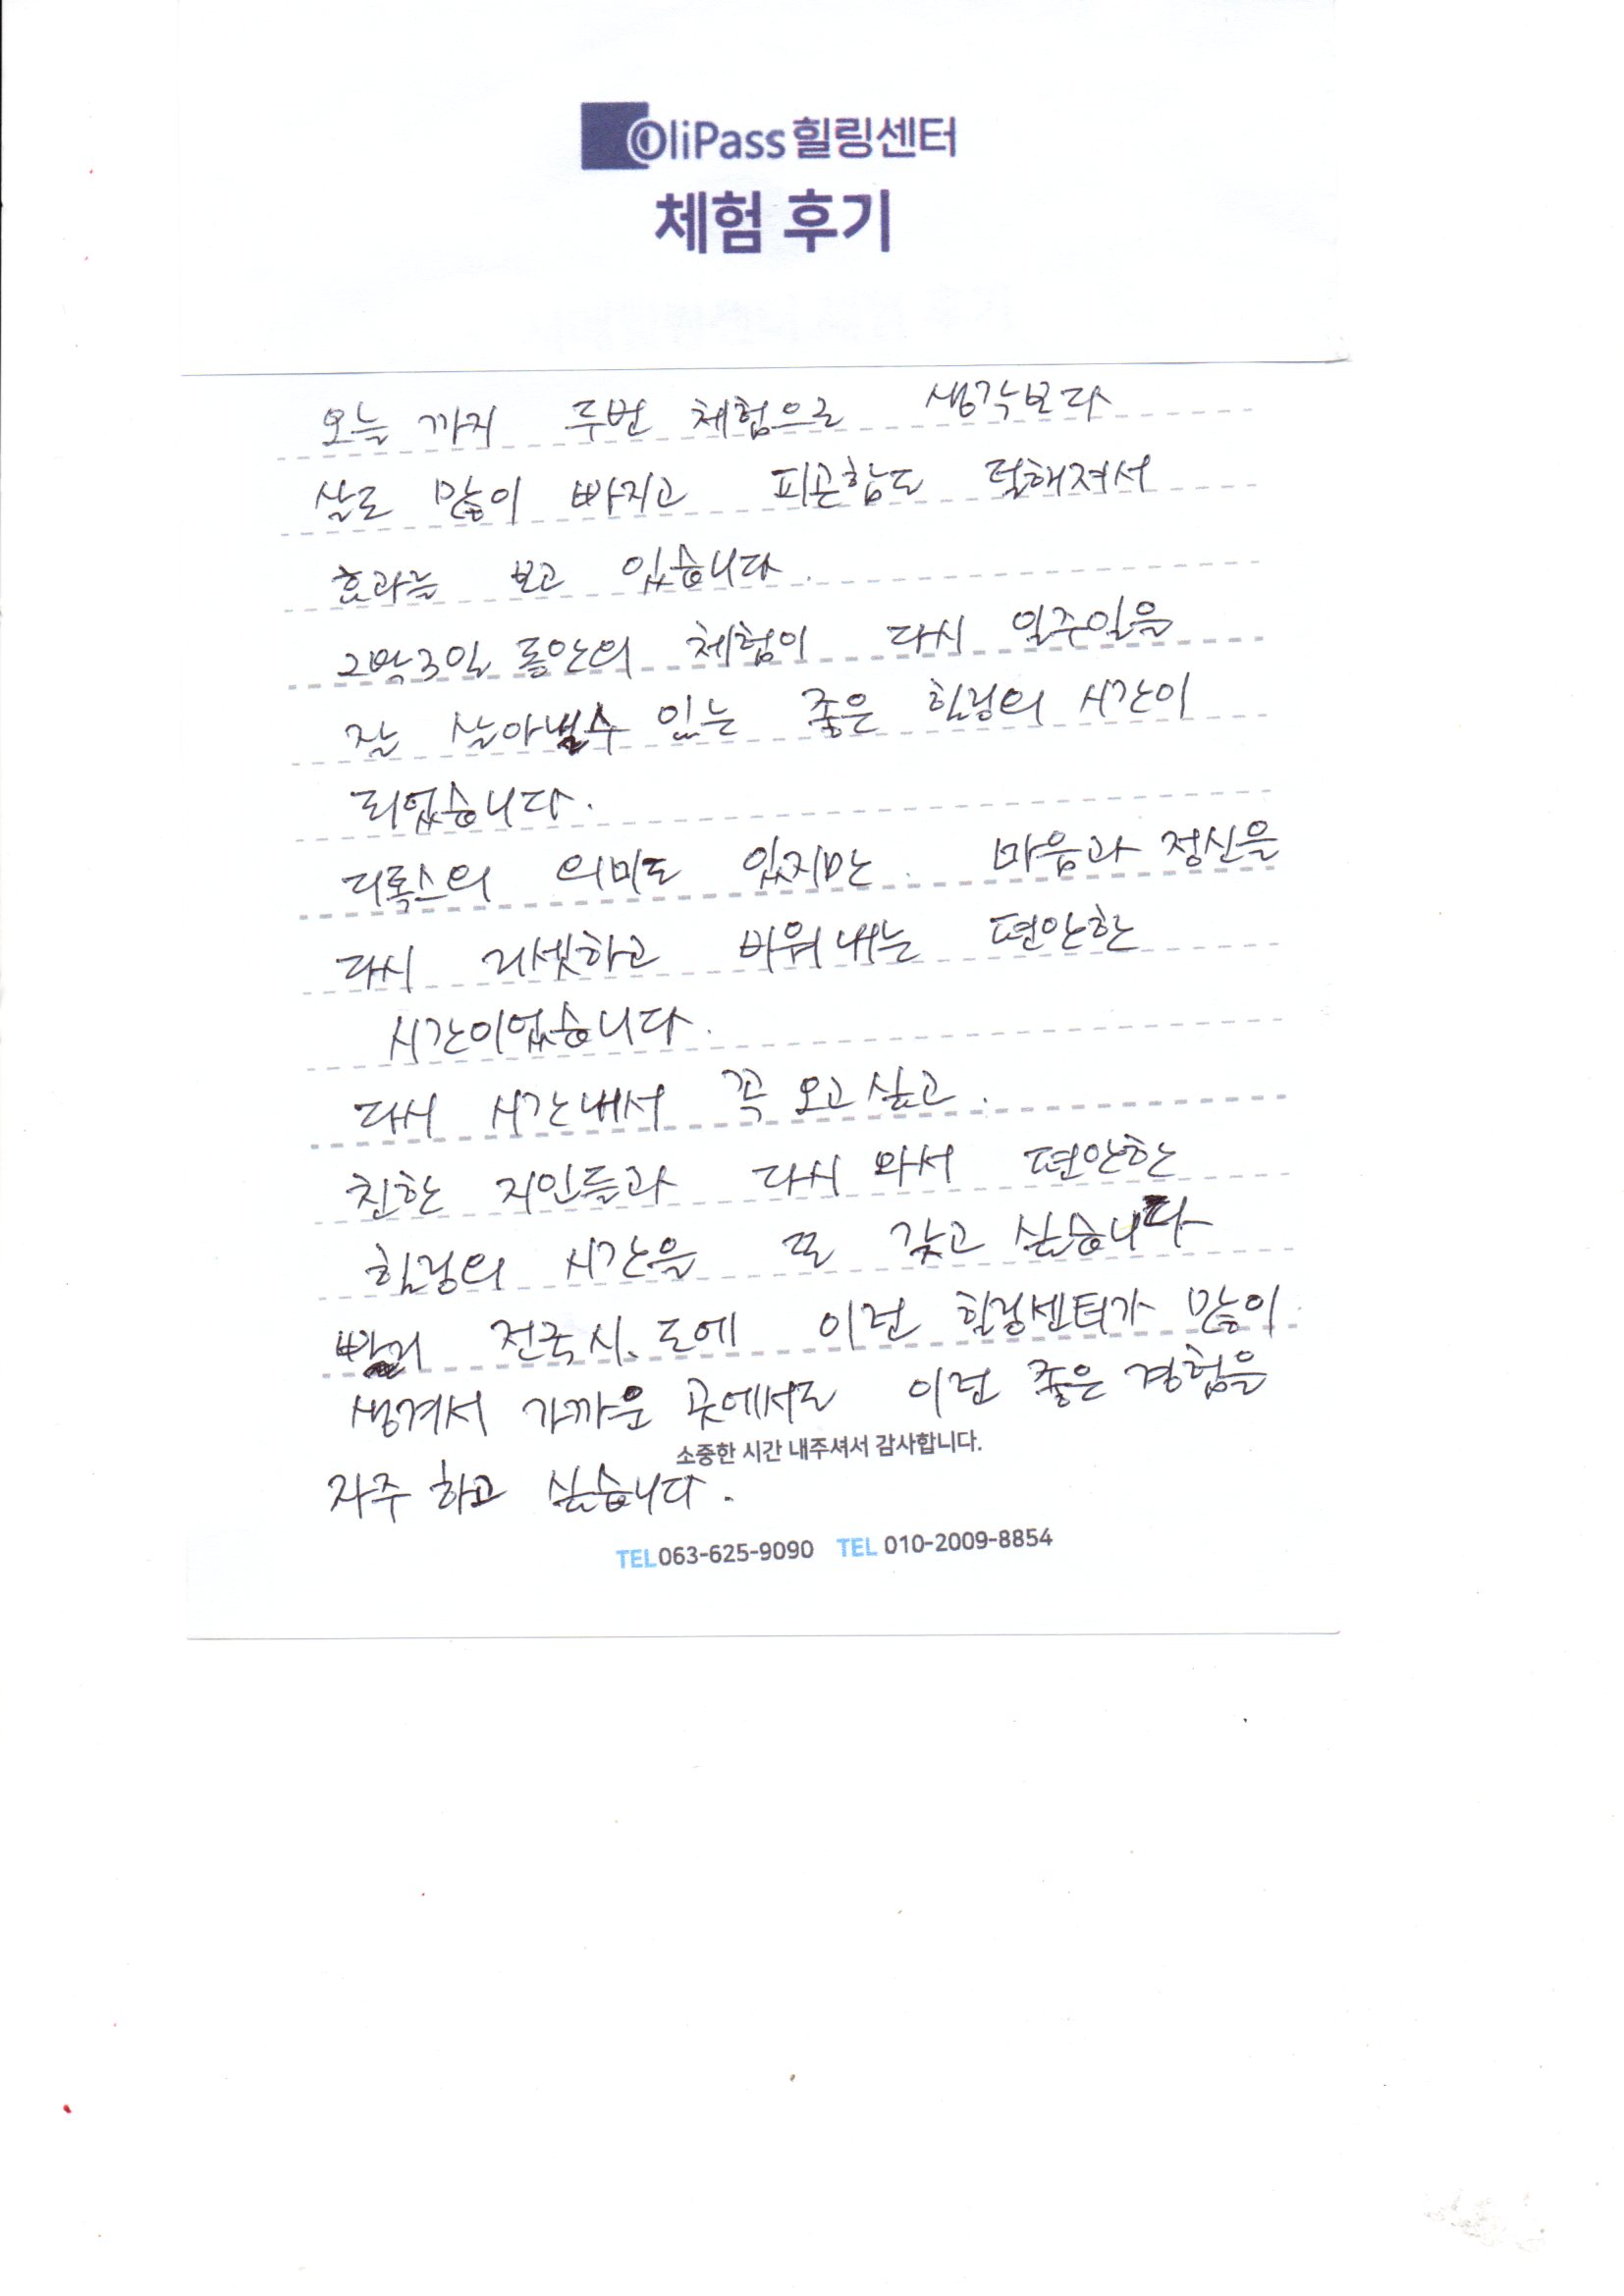 OliPass 힐링센터
체험 후기
오늘 까지 두번 체험으로 생각보다
살도 많이 빠지고 피곤함도 덜해져서
효과를 보고 있습니다.
2박3일 동안의 체험이 다시 일주일을
잘 살아낼수 있는 좋은 힐링의 시간이
되었습니다.
디톡스의 의미도 있지만. 마음과 정신을
다시 리셋하고 비워내는 편안한
시간이었습니다.
다시 시간내서 꼭 오고싶고.
친한 지인들과 다시 와서 편안한
힐링의 시간을 또 갖고 싶습니다
빨리 전국 시.도에 이런 힐링센터가 많이
생겨서 가까운 곳에서도 이런 좋은 경험을
소중한 시간 내주셔서 감사합니다.
자주 하고 싶습니다.
TEL 063-625-9090 TEL 010-2009-8854